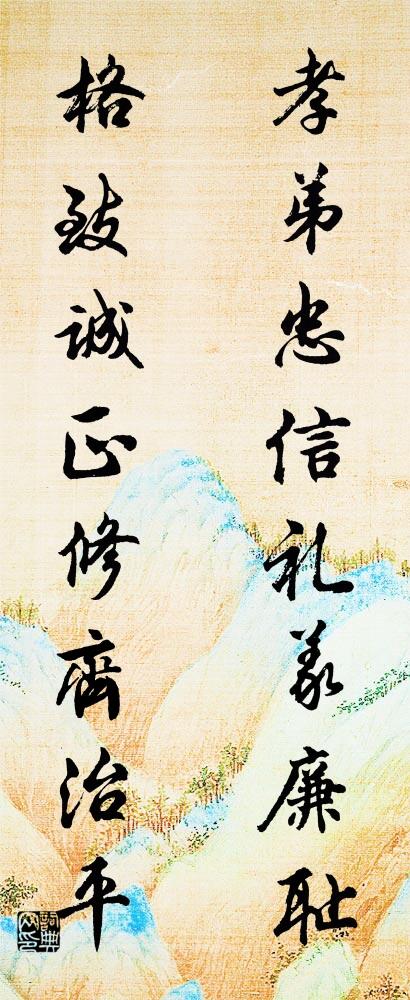 孝弟忠信礼義廉耻
格致誠正修齊治平